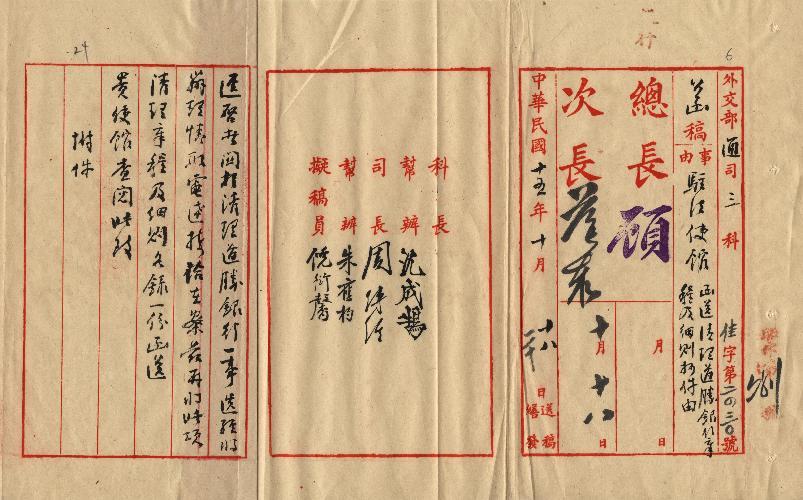 外交部通司三科 佳字第二四三〇號
函稿
事由
駐法使館
函送清理道勝銀行章
程及細則抄件由
總長 顧
次長
月 日
十月十八日
中華民國十五年十月
十八日送稿
日繕發
科長
幫辦 沈成鵠
司長 周傳經
幫辦 朱
擬稿員
逕啓者關於清理道勝銀行一事迭經將
辦理情形電達接洽在案茲再將此項
清理章程及細則各錄一份函送
貴使館查閱此致
附件
6